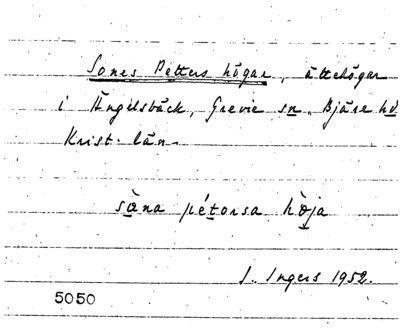 Sones Petters högar, ättehögar
i Ängelsbäck, Grevie sn, Bjäre hd
Krist. län.
sɑ̀na pétorsa hø̀ja
I. Ingers 1952.
5050